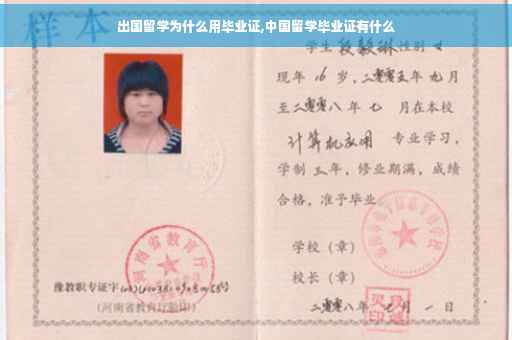 出国留学为什么用毕业证,中国留学毕业证有什么
样本
学生段毅琳性别女
现年16岁,二零零五年九月
至二零零八年七月在本校
计算机应用专业学习,
学制三年,修业期满,成绩
合格,准予毕业
学校(章)
校长(章)
二零零八年七月一日
河南省教育厅
豫教职专证字
(河南省教育厅验印)